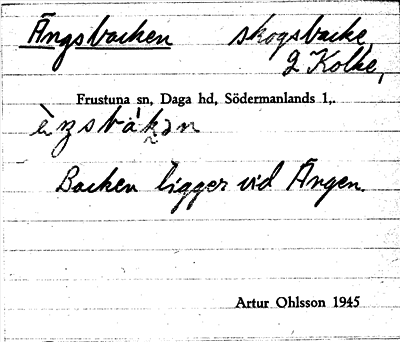 Ängsbacken skogsbacke,
2 Kolke,
Frustuna sn, Daga hd, Södermanlands l,.
Backen ligger vid Ängen.
Artur Ohlsson 1945